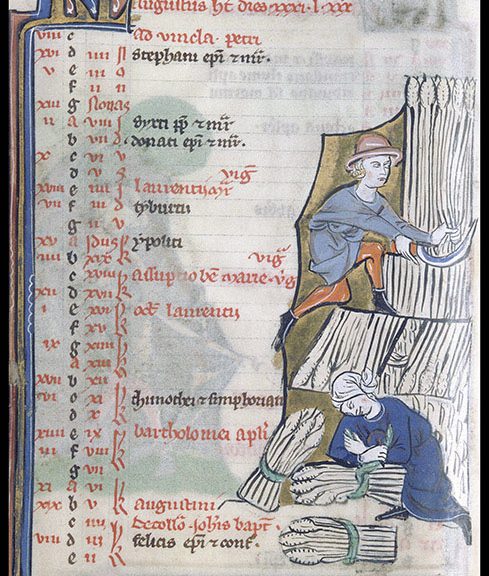 Augustus ht dies xxxi. l. xxx
viii c ad vincla petri
xvi d iiii N stephani epi ⁊ mr.
v e iii N
f ii N
xiii g Nonas
ii a viii I Syxti pp ⁊ mr
b vii d. donati epi ⁊ mr.
x c vi
d v vig
xviii e iiii laurentii mr
vii f iii tyburtii
g ii
xv a Idus ypoliti
iiii b xix k vig
c xviii k assuptio be marie vg
xii d xvii k
i e xvi k oct laurentii
f xv k
ix g xiiii k
a xiii k
xvii b xii k
vi c xi k thimothei ⁊ simphoriani
d x k
xiiii e ix k bartholomei apli
iii f viii k
g vii k
xi a vi k
xix b v k augustini
c iiii k decollo iohis bapt
viii d iii k felicis epi ⁊ conf.
e ii k